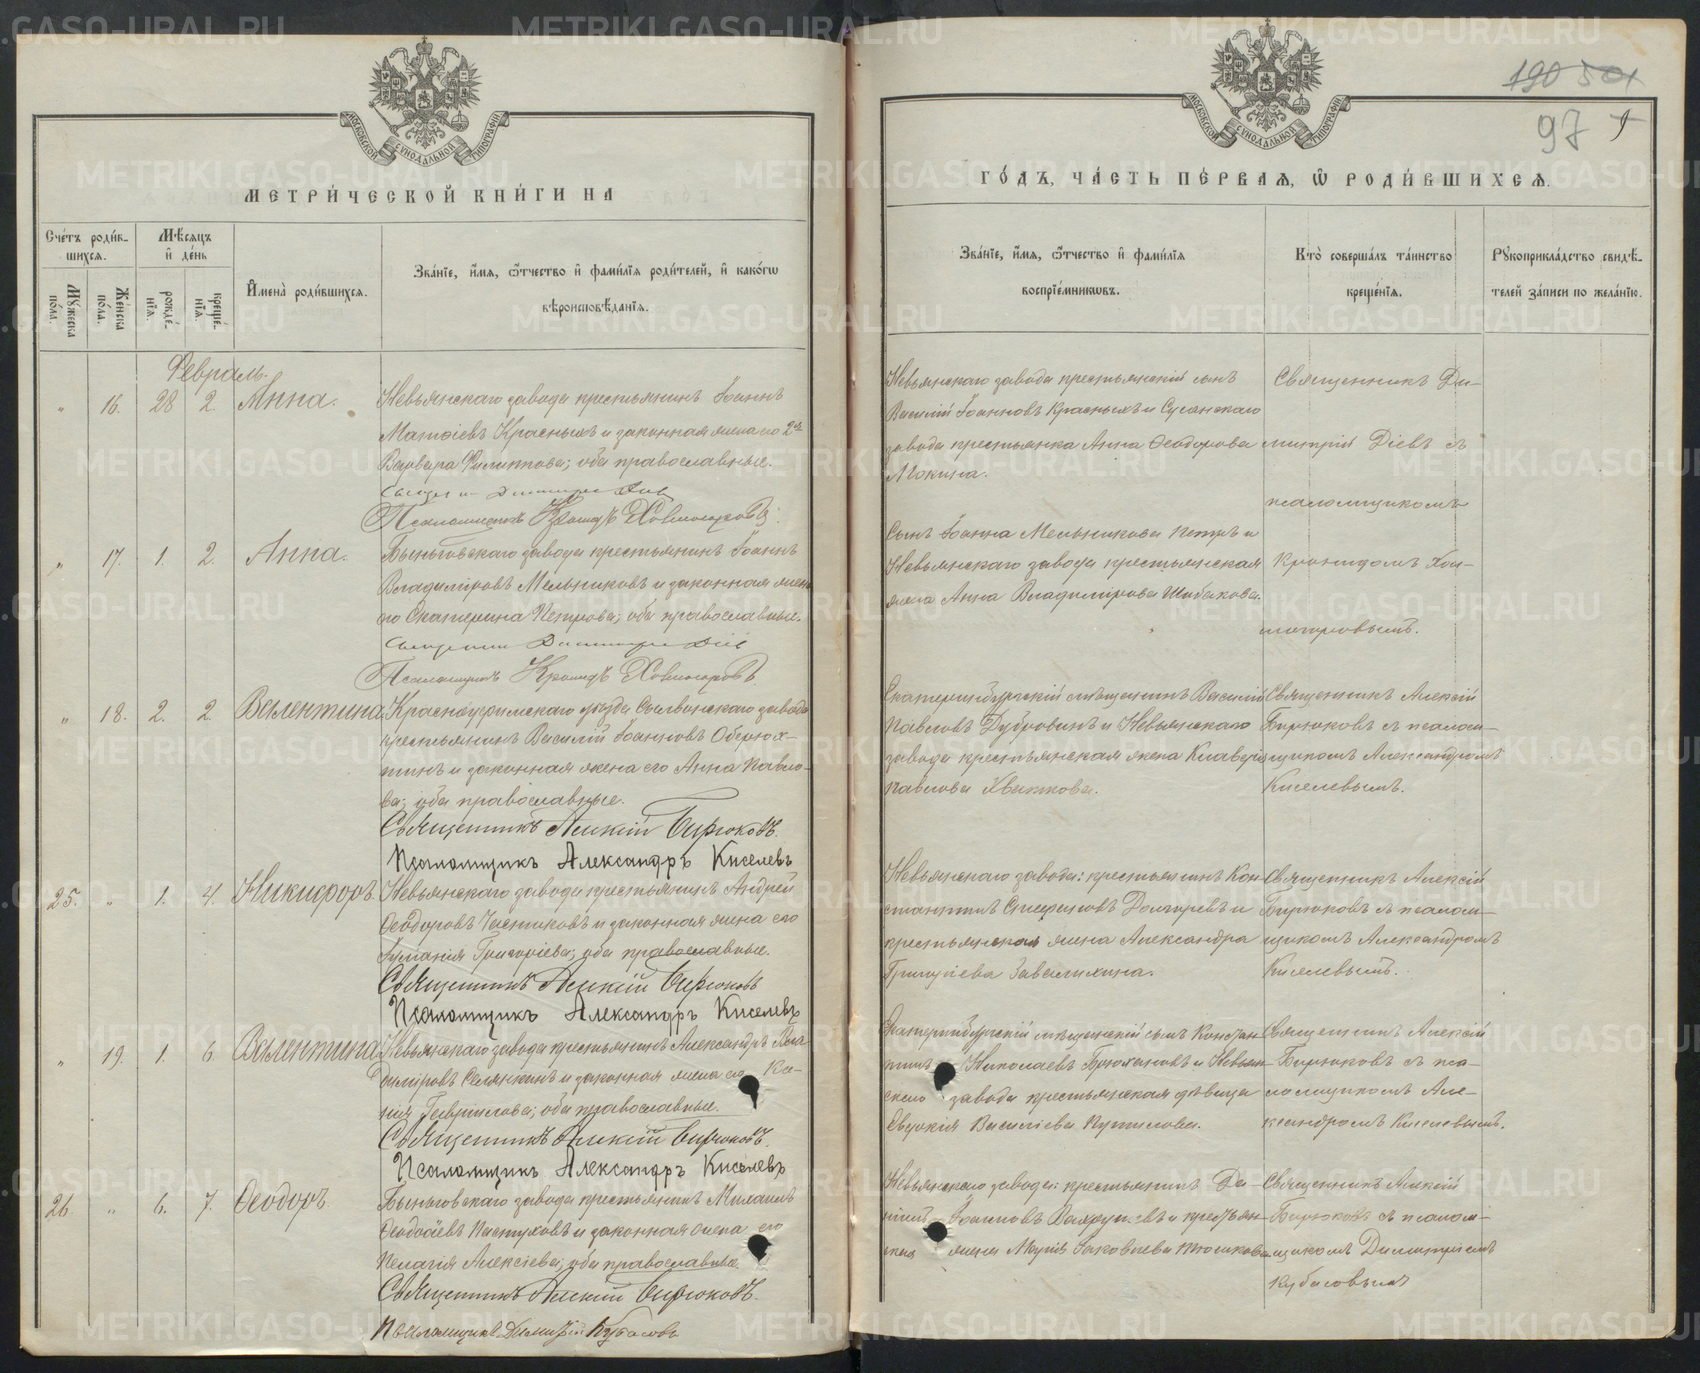 МЕТРИ́ЧЕСКОЙ КНИ́ГИ НА
Сче́тъ роди́в-
шихся.
Мѣ́сяцъ
и҆ де́нь
Му́жеска
по́ла.
Же́нска
по́ла.
рожде́-
нїя.
креще́-
нїя.
И҆мена̀ роди́вшихся.
Зва́нїе, и҆́мя, ѻ҆́тчество и҆ фами́лїя роди́телей, и҆ како́гѡ
вѣроисповѣ́данїя.
Февраль.
" 16. 28 2. Анна.
Невьянскаго завода крестьянинъ Іоаннъ
Матѳіевъ Красныхъ и законная жена его 2ая
Варвара Филиппова; оба православные.
Псаломщикъ
" 17. 1. 2. Анна.
Быньговскаго завода крестьянинъ Іоаннъ
Владиміровъ Мельниковъ и законная жена
его Екатерина Петрова; оба православные.
Псаломщикъ
" 18. 2. 2. Валентина.
Красноуфимскаго уѣзда Сылвинскаго завода
крестьянинъ Василій Іоанновъ
и законная жена его Анна Павло-
ва; оба православные.
Священникъ Алексій Бирюковъ.
Псаломщикъ Александръ Киселевъ
25. " 1. 4. Никифоръ.
Невьянскаго завода крестьянинъ Андрей
Ѳеодоровъ и законная жена его
Григоріева; оба православные.
Священникъ Алексій Бирюковъ
Псаломщикъ Александръ Киселевъ
" 19. 1. 6 Валентина
Невьянскаго завода крестьянинъ Александръ Вла-
диміровъ Селянкинъ и законная жена его Ксе-
нія Гаврилова; оба православные.
Священникъ Алексій Бирюковъ.
Псаломщикъ Александръ Киселевъ
26. " 6. 7. Ѳеодоръ.
Быньговскаго завода крестьянинъ Михаилъ
Пастуховъ и законная жена его
Пелагія Алексіева; оба православные.
Священникъ Алексій Бирюковъ.
Псаломщикъ Димитрій Кубасовъ
190 501
97
ГО́ДЪ, ЧА́СТЬ ПЕ́РВАЯ, Ѡ҆ РОДИ́ВШИХСЯ.
Зва́нїе, и҆́мя, ѻ҆́тчество и҆ фами́лїя
воспрїе́мникѡвъ.
Кто̀ соверша́лъ та́инство
креще́нїя.
Рꙋкоприкла́дство свидѣ́-
телей за́писи по жела́нїю.
Невьянскаго завода крестьянскій сынъ
Василій Іоанновъ Красныхъ и Сусанскаго
завода крестьянка Анна Ѳеодорова
Мокина.
Священникъ Ди-
митрій Діевъ съ
псаломщикомъ
Сынъ Іоанна Мельникова Петръ и
Невьянскаго завода крестьянская
жена Анна Владимірова Шибакова.
Кронидомъ Хви-
Екатеринбургскій мѣщанинъ Василій
Павловъ Дубровинъ и Невьянскаго
завода крестьянская жена Клавдія
Павлова
Священникъ Алексій
Бирюковъ съ псалом-
щикомъ Александромъ
Киселевымъ.
Невьянскаго завода: крестьянинъ Кон-
стантинъ Стефановъ и
крестьянская жена Александра
Григоріева Завалихина.
Священникъ Алексій
Бирюковъ съ псалом-
щикомъ Александромъ
Киселевымъ.
Екатеринбургскій мѣщанскій сынъ Констан-
тинъ Николаевъ Брюхановъ и Невьян-
скаго завода крестьянская дѣвица
Евдокія Василіева Путилова.
Священникъ Алексій
Бирюковъ съ пса-
ломщикомъ Але-
ксандромъ Киселевымъ.
Невьянскаго завода: крестьянинъ Да-
Іоанновъ и крестьян-
ская жена Марія Іаковлева
Священникъ Алексій
Бирюковъ съ псалом-
щикомъ Димитріемъ
Кубасовымъ
METRIKI.GASO-URAL.RU